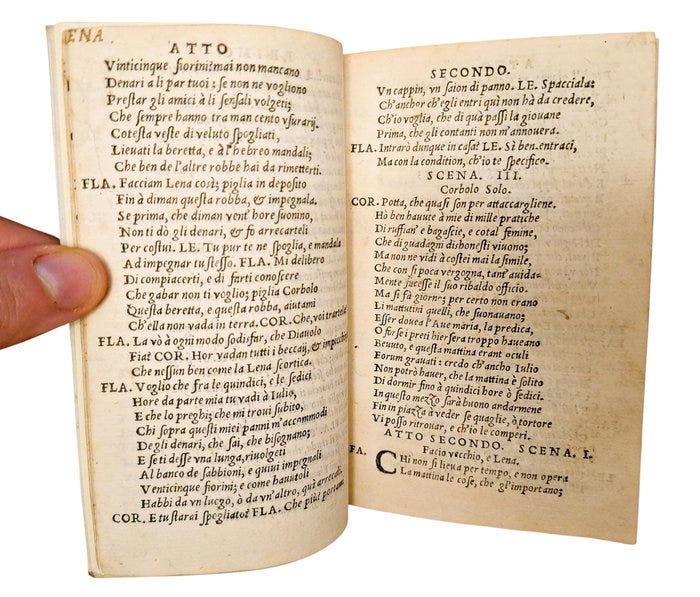 ENA
ATTO
Vinticinque fiorini? mai non mancano
Denari a li par tuoi: se non ne vogliono
Prestar gli amici à li sensali volgeti;
Che sempre hanno tra man cento vsurarij.
Cotesta veste di veluto spogliati,
Lieuati la beretta, e à l'hebreo mandali;
Che ben de l'altre robbe hai da rimetterti.
FLA. Facciam Lena così; piglia in deposito
Fin à diman questa robba, & impegnala.
Se prima, che diman vent'hore suonino,
Non ti dò gli denari, & fò arrecarteli
Per costui. LE. Tu pur te ne spoglia, e mandala
Ad impegnar tu stesso. FLA. Mi delibero
Di compiacerti, e di farti conoscere
Che gabar non ti voglio; piglia Corbolo
Questa beretta, e questa robba, aiutami
Ch'ella non vada in terra. COR. Che, voi trartela?
FLA. La vò à ogni modo sodisfar, che Diauolo
Fia? COR. Hor vadan tutti i beccaij, & impicchisi
Che nessun ben come la Lena scortica.
FLA. Voglio che fra le quindici, e le sedici
Hore da parte mia tu vadi à Iulio,
E che lo preghi; che mi troui subito,
Chi sopra questi miei panni m'accommodi
De gli denari, che sai, che bisognano;
E se ti desse vna lunga, riuolgeti
Al banco de sabbioni, e quiui impegnali
Venticinque fiorini; e come hauutoli
Habbi da vn luogo, ò da vn'altro, quì arrecali.
COR. E tu starai spogliato? FLA. Che più? portami
SECONDO.
Vn cappin, vn saion di panno. LE. Spacciala:
Ch'anchor ch'egli entri quì non hà da credere,
Ch'io voglia, che di quà passi la giouane
Prima, che gli contanti non m'annouera.
FLA. Intrarò dunque in casa? LE. Sì ben. entraci,
Ma con la condition, ch'io te specifico.
SCENA. III.
Corbolo Solo.
COR. Potta, che quasi son per attaccargliene.
Hò ben hauute à mie di mille pratiche
Di ruffian' e bagascie, e cotal femine,
Che di guadagni dishonesti viuono;
Ma non ne vidi à costei mai la simile,
Che con sì poca vergogna, tant'auida-
Mente facesse il suo ribaldo officio.
Ma si fà giorno; per certo non erano
Li mattutini quelli, che suonauano;
Esser douea l'Aue maria, la predica,
O forse i preti hier sera troppo haueano
Beuuto, e questa mattina erant oculi
Forum grauati: credo ch'ancho Iulio
Non potrò hauer, che la mattina è solito
Di dormir fino à quindici hore ò sedici.
In questo mezzo sarà buono andarmene
Fin in piazza à veder se quaglie, ò tortore
Vi posso ritrouar, e ch'io le comperi.
ATTO SECONDO. SCENA. I.
Facio vecchio, e Lena.
FA. CHi non si lieua per tempo, e non opera
La mattina le cose, che gl'importano;